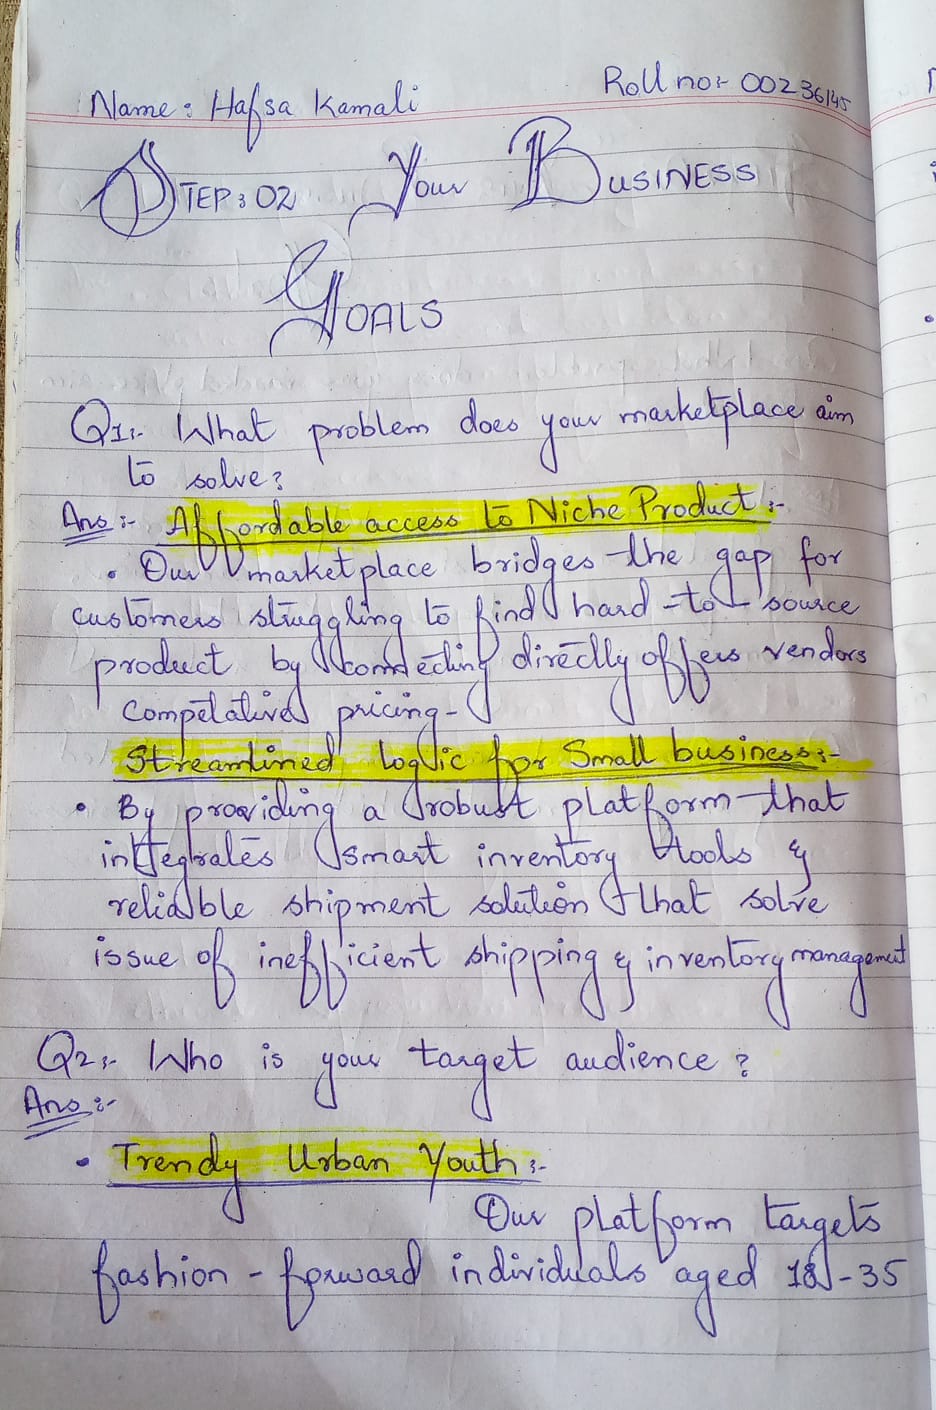 Name: Hafsa Kamali
Roll no:- 00236145
STEP: 02 Your BUSINESS
GOALS
Q1:- What problem does your marketplace aim
to solve?
Ans:- Affordable access to Niche Product:-
• Our marketplace bridges the gap for
customers struggling to find hard-to-source
product by connecting directly offers vendors
competative pricing-
Streamlined logic for Small business:-
• By providing a robust platform that
integrates smart inventory tools &
reliable shipment solution that solve
issue of inefficient shipping & inventory management
Q2:- Who is your target audience?
Ans:-
• Trendy Urban Youth:-
Our platform targets
fashion-forward individuals aged 18-35